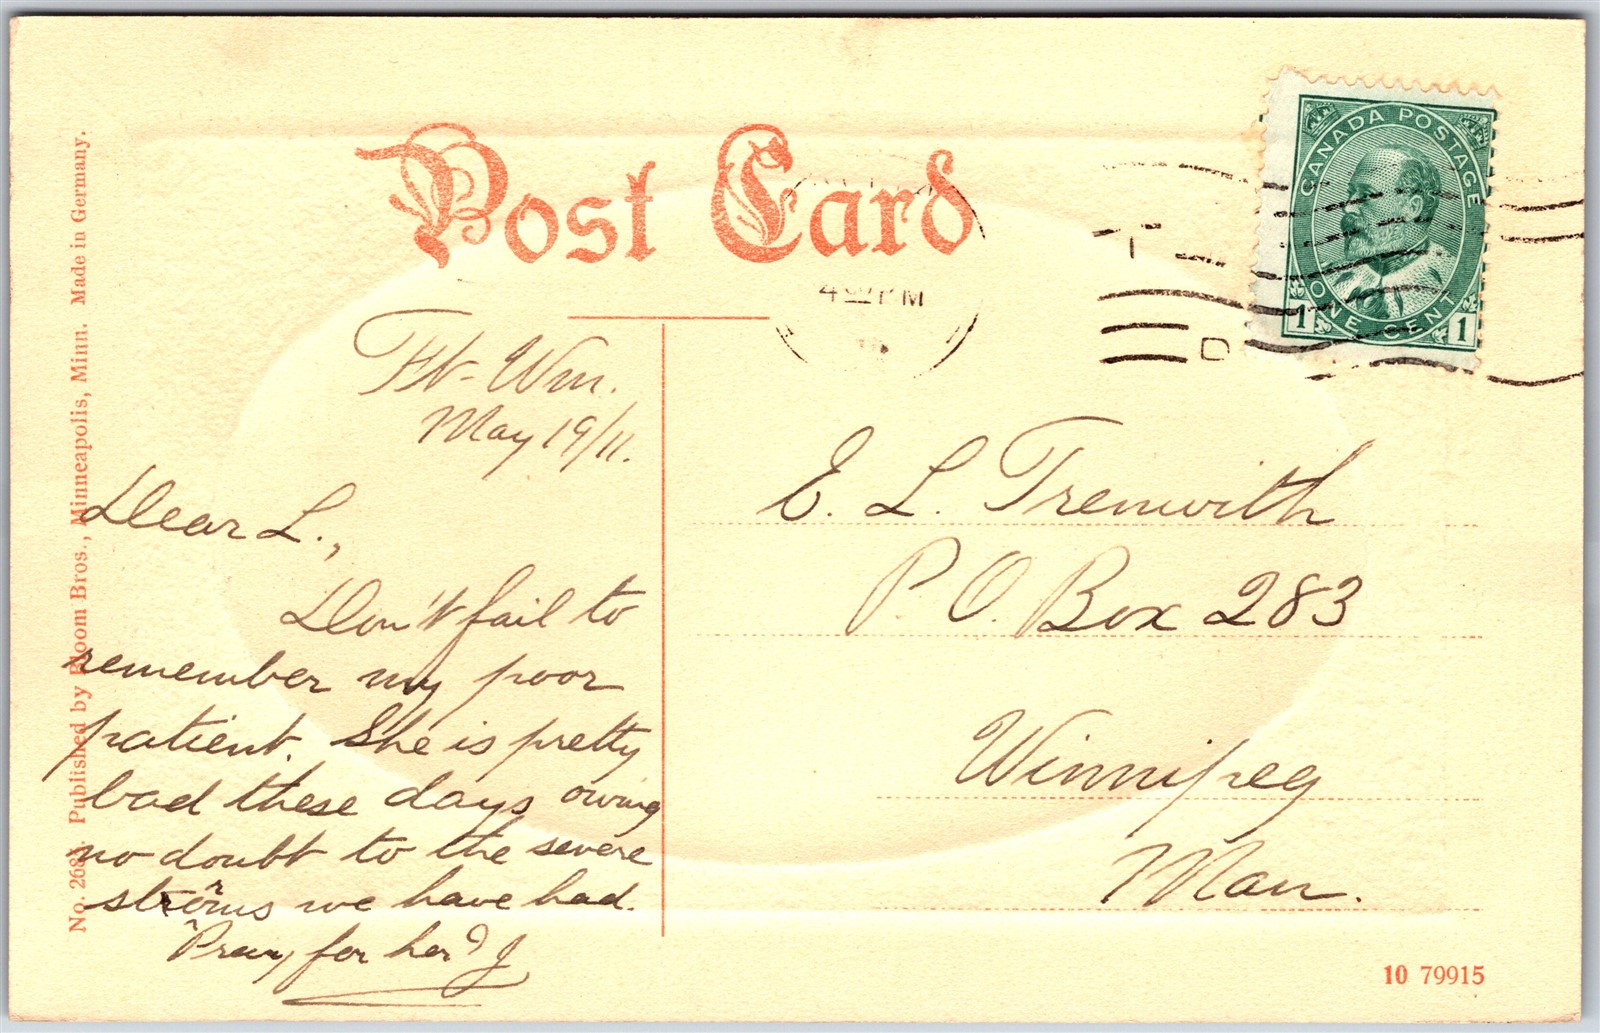 Post Card
CANADA POSTAGE
ONE CENT
1 1
4 PM
Ft-Wm.
May 19/11.
Dear L.,
Don't fail to
remember my poor
patient. She is pretty
bad these days owing
no doubt to the severe
storms we have had.
Pray for her? J
E. L. Trenwith
P.O. Box 283
Winnipeg
Man.
No. 268 Published by Bloom Bros., Minneapolis, Minn. Made in Germany.
10 79915